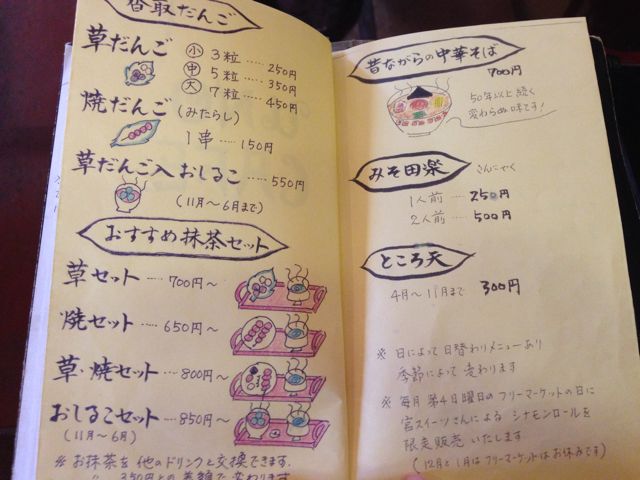 香取だんご
草だんご
小 3粒 ..... 250円
中 5粒 ..... 350円
大 7粒 ..... 450円
焼だんご (みたらし)
1串 ---- 150円
草だんご入おしるこ ..... 550円
(11月〜6月まで)
おすすめ抹茶セット
草セット ..... 700円〜
焼セット ..... 650円〜
草・焼セット ..... 800円〜
おしるこセット ..... 850円〜
(11月〜6月)
※ お抹茶を他のドリンクと交換できます.
〃 350円との差額で変わります
昔ながらの中華そば
700円
50年以上続く
変わらぬ味です!
みそ田楽 さんにゃく
1人前 ---- 250円
2人前 ---- 500円
ところ天
4月〜11月まで 300円
※ 日によって日替わりメニューあり
季節によって変わります
※ 毎月第4日曜日のフリーマーケットの日に
宮スイーツさんによるシナモンロールを
限定販売いたします
(12月と1月はフリーマーケットはお休みです)